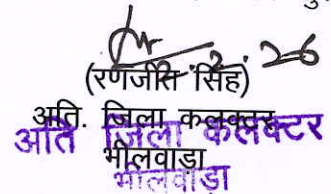 (रणजीत सिंह)
अति. जिला कलक्टर
भीलवाड़ा
अति जिला कलेक्टर
भीलवाड़ा